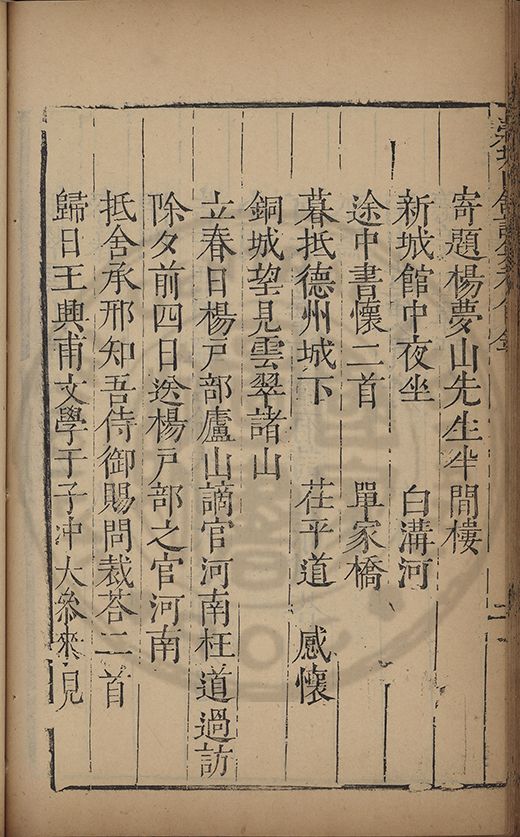 寄題楊夢山先生半閒樓
新城館中夜坐　白溝河
途中書懷二首　單家橋
暮抵德州城下　茌平道　感懷
銅城望見雲翠諸山
立春日楊戸部廬山謫官河南枉道過訪
除夕前四日送楊戸部之官河南
抵舍承邢知吾侍御賜問裁荅二首
歸日王興甫文學于子冲大叅來見